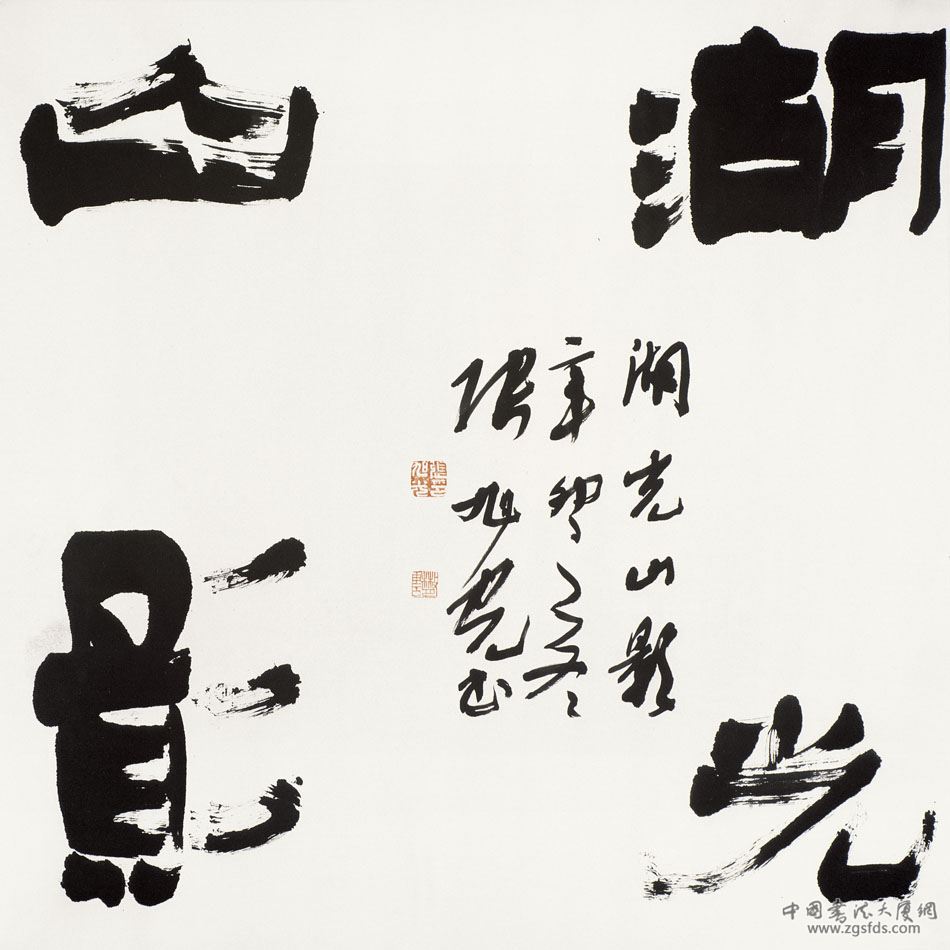 湖光
山影
湖光山影
辛卯之冬
张旭光书
中國書法大厦網
www.zgsfds.com